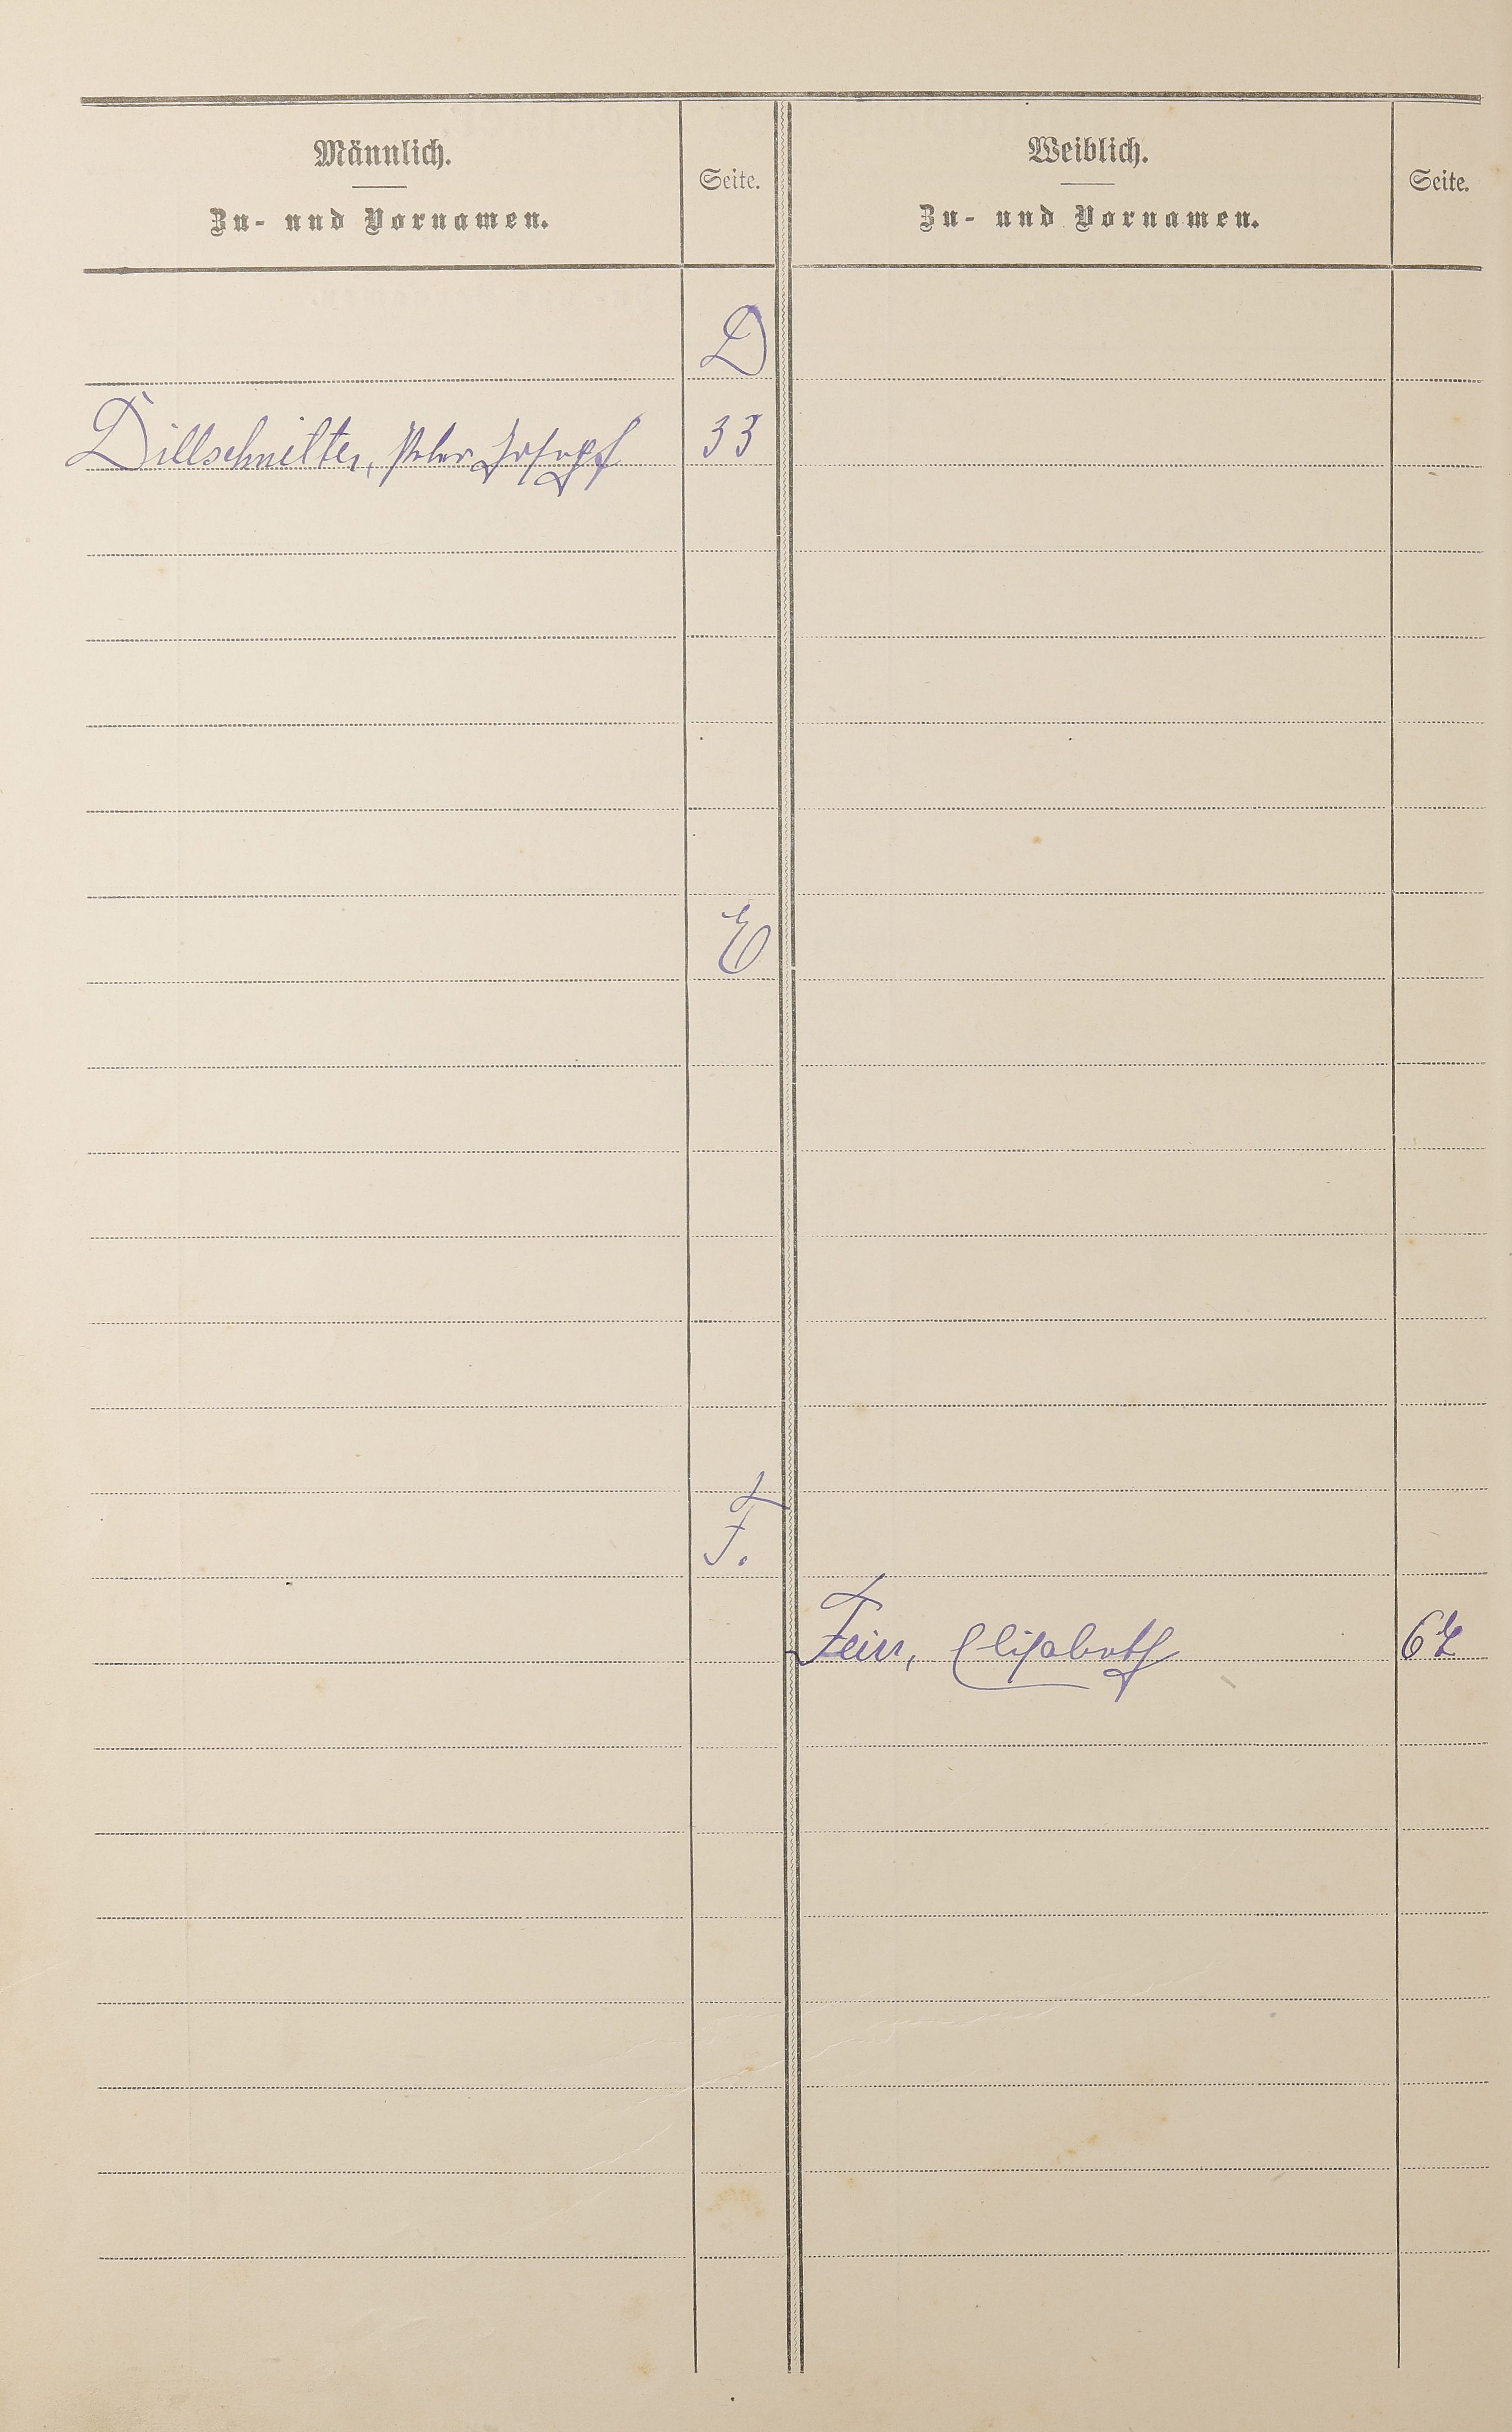 Männlich.
Zu- und Vornamen.
Seite.
Weiblich.
Zu- und Vornamen.
Seite.
D
Dillschnitter, Peter Joseph 33
E
F.
Fein, Elisabeth 67